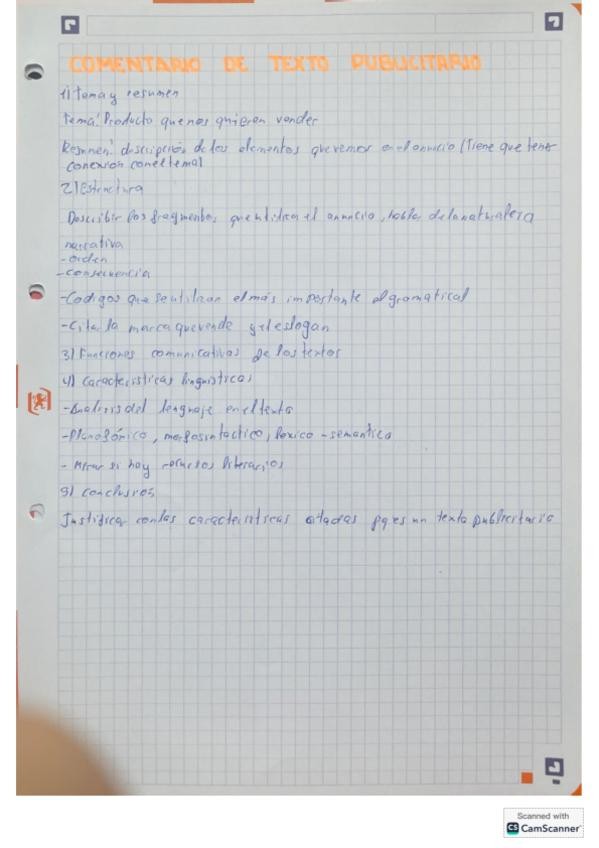 COMENTARIO DE TEXTO PUBLICITARIO
1) Tema y resumen
Tema: Producto que nos quieren vender
Resumen: descripción de los elementos que vemos en el anuncio (Tiene que tener
conexión con el tema)
2) Estructura
Describir los fragmentos que utiliza el anuncio, habla de la naturaleza
narrativa
- orden
- consecuencia
- Codigos que se utilizan el más importante el gramatical
- Citar la marca que vende y el eslogan
3) Funciones comunicativas de los textos
4) Caracteristicas linguisticas
- Analisis del lenguaje en el texto
- Plano fónico, morfosintactico, lexico - semantico
- Mirar si hay recursos literarios
5) conclusión
Justificar con las caracteristicas citadas pq es un texto publicitario
Scanned with
CS CamScanner